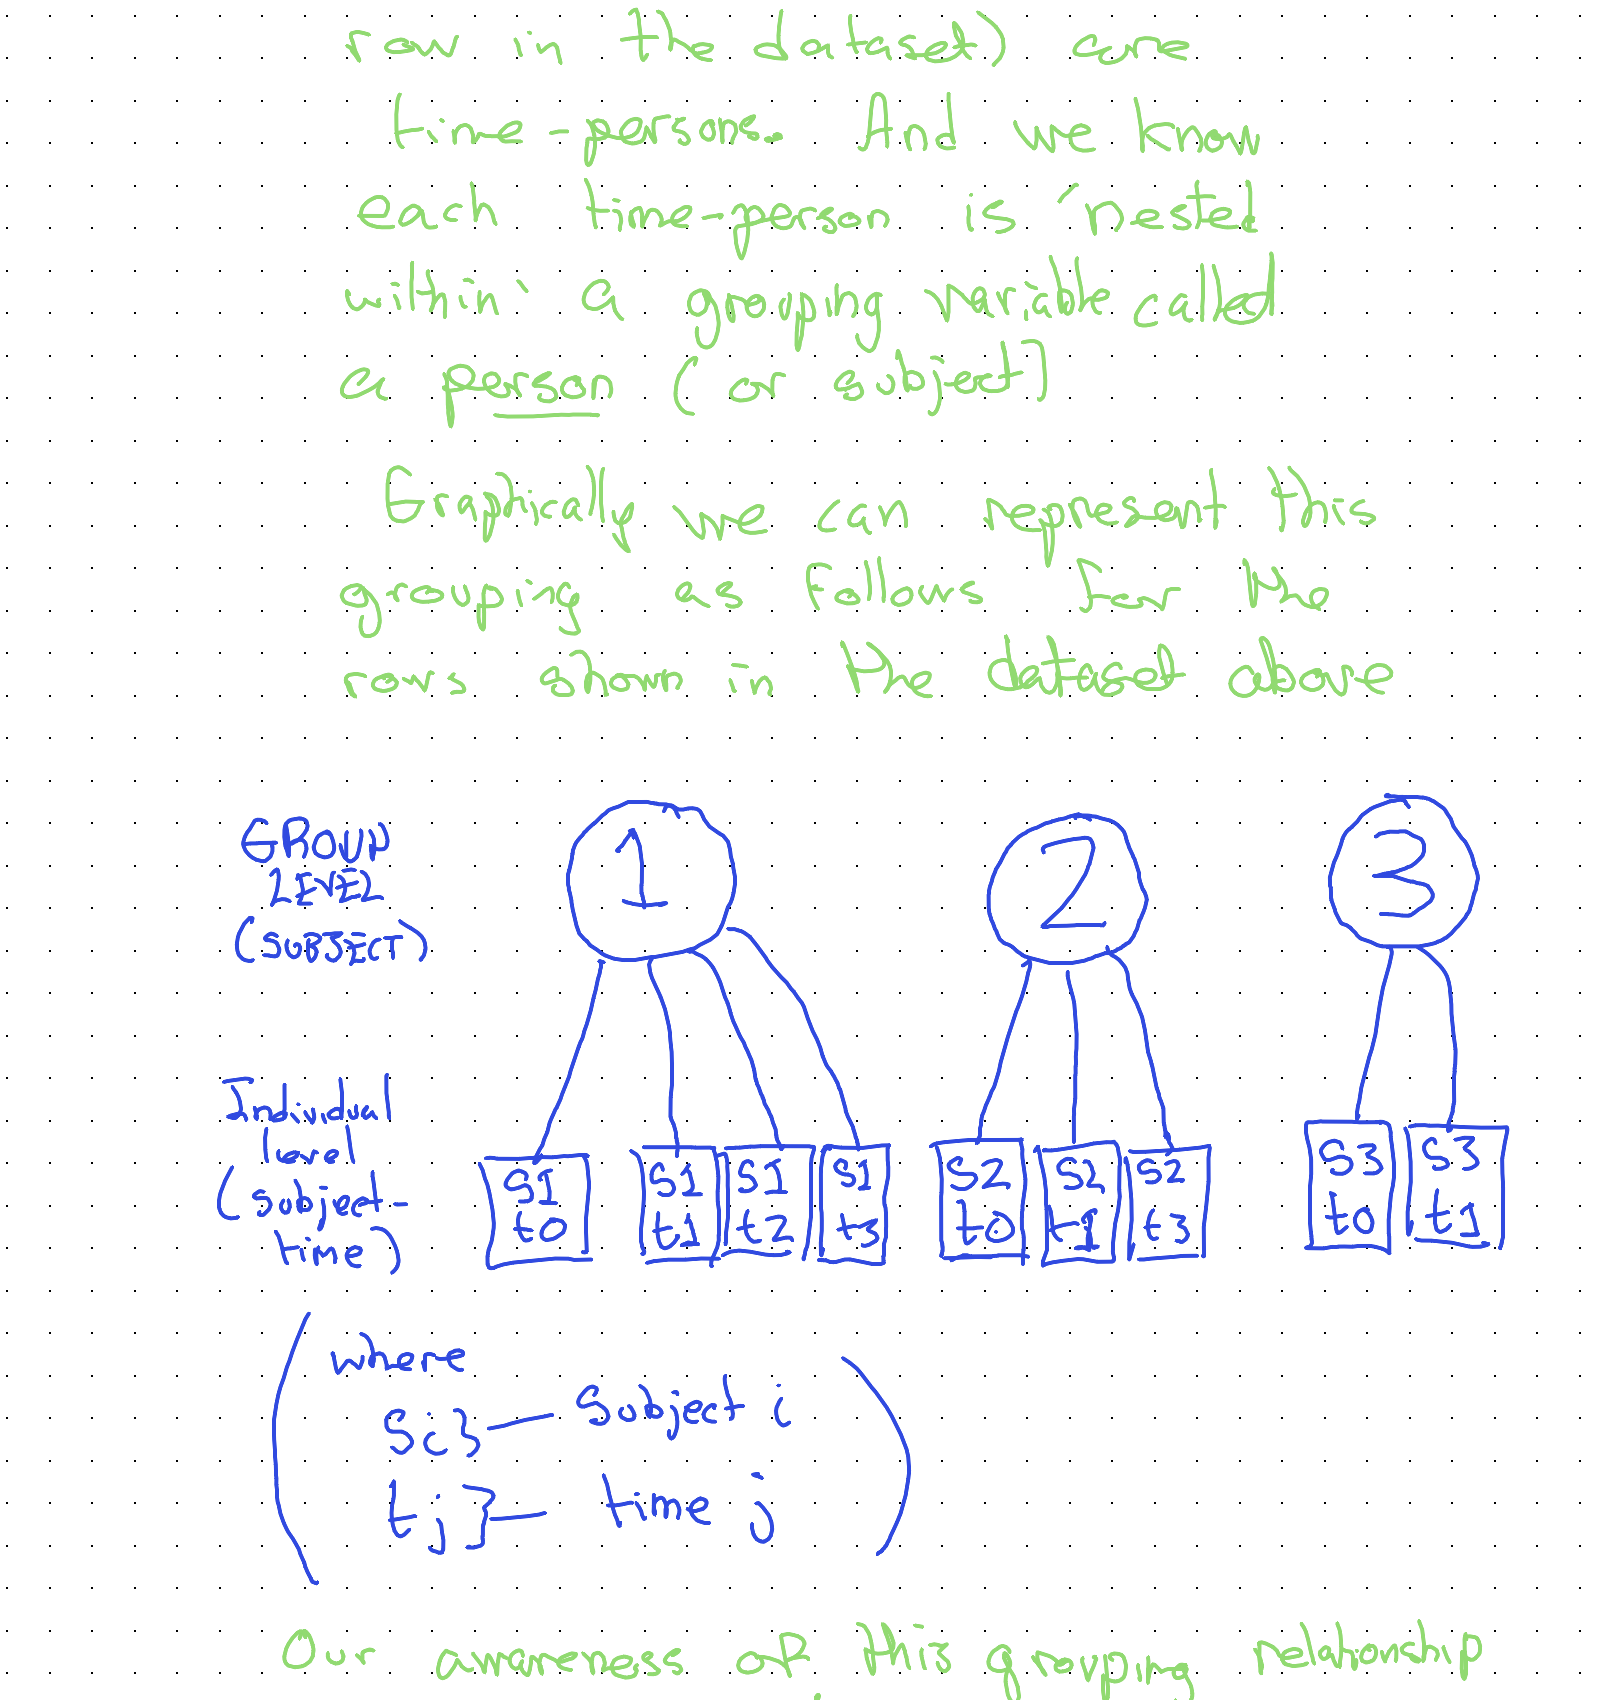 row in the dataset) are
time-persons. And we know
each time-person is 'nested
within' a grouping variable called
a person (or subject)
Graphically we can represent this
grouping as follows for the
rows shown in the dataset above
GROUP
LEVEL
(SUBJECT)
1
2
3
Individual
level
(subject-
time)
S1
t0
S1
t1
S1
t2
S1
t3
S2
t0
S2
t1
S2
t3
S3
t0
S3
t1
(where
Si} — Subject i
tj} — time j)
Our awareness of this grouping relationship